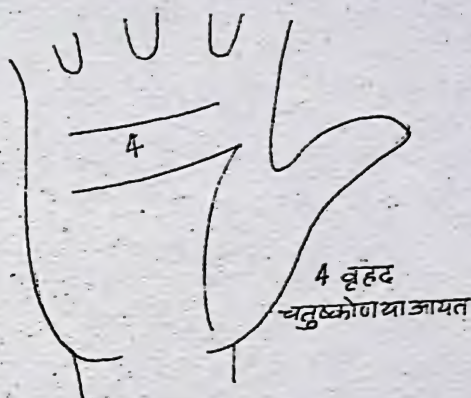 4
4 वृहद
चतुष्कोण या आयत